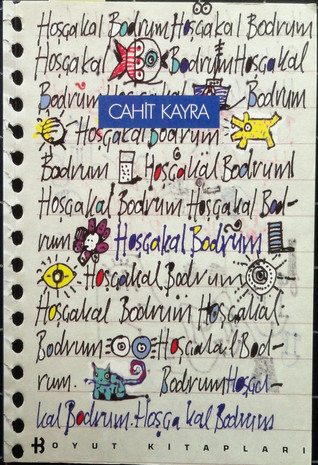 Hoşçakal Bodrum Hoşçakal Bodrum
Hoşçakal Bodrum Hoşçakal
Bodrum Bodrum
CAHİT KAYRA
Hoşçakal Bodrum
Bodrum Hoşçakal Bodrum
Hoşçakal Bodrum Hoşçakal Bod-
rum Hoşçakal Bodrum
Hoşçakal Bodrum
Hoşçakal Bodrum Hoşçakal
Bodrum Hoşçakal Bod-
rum. Bodrum Hoşça-
kal Bodrum. Hoşça kal Bodrum
BOYUT KİTAPLARI